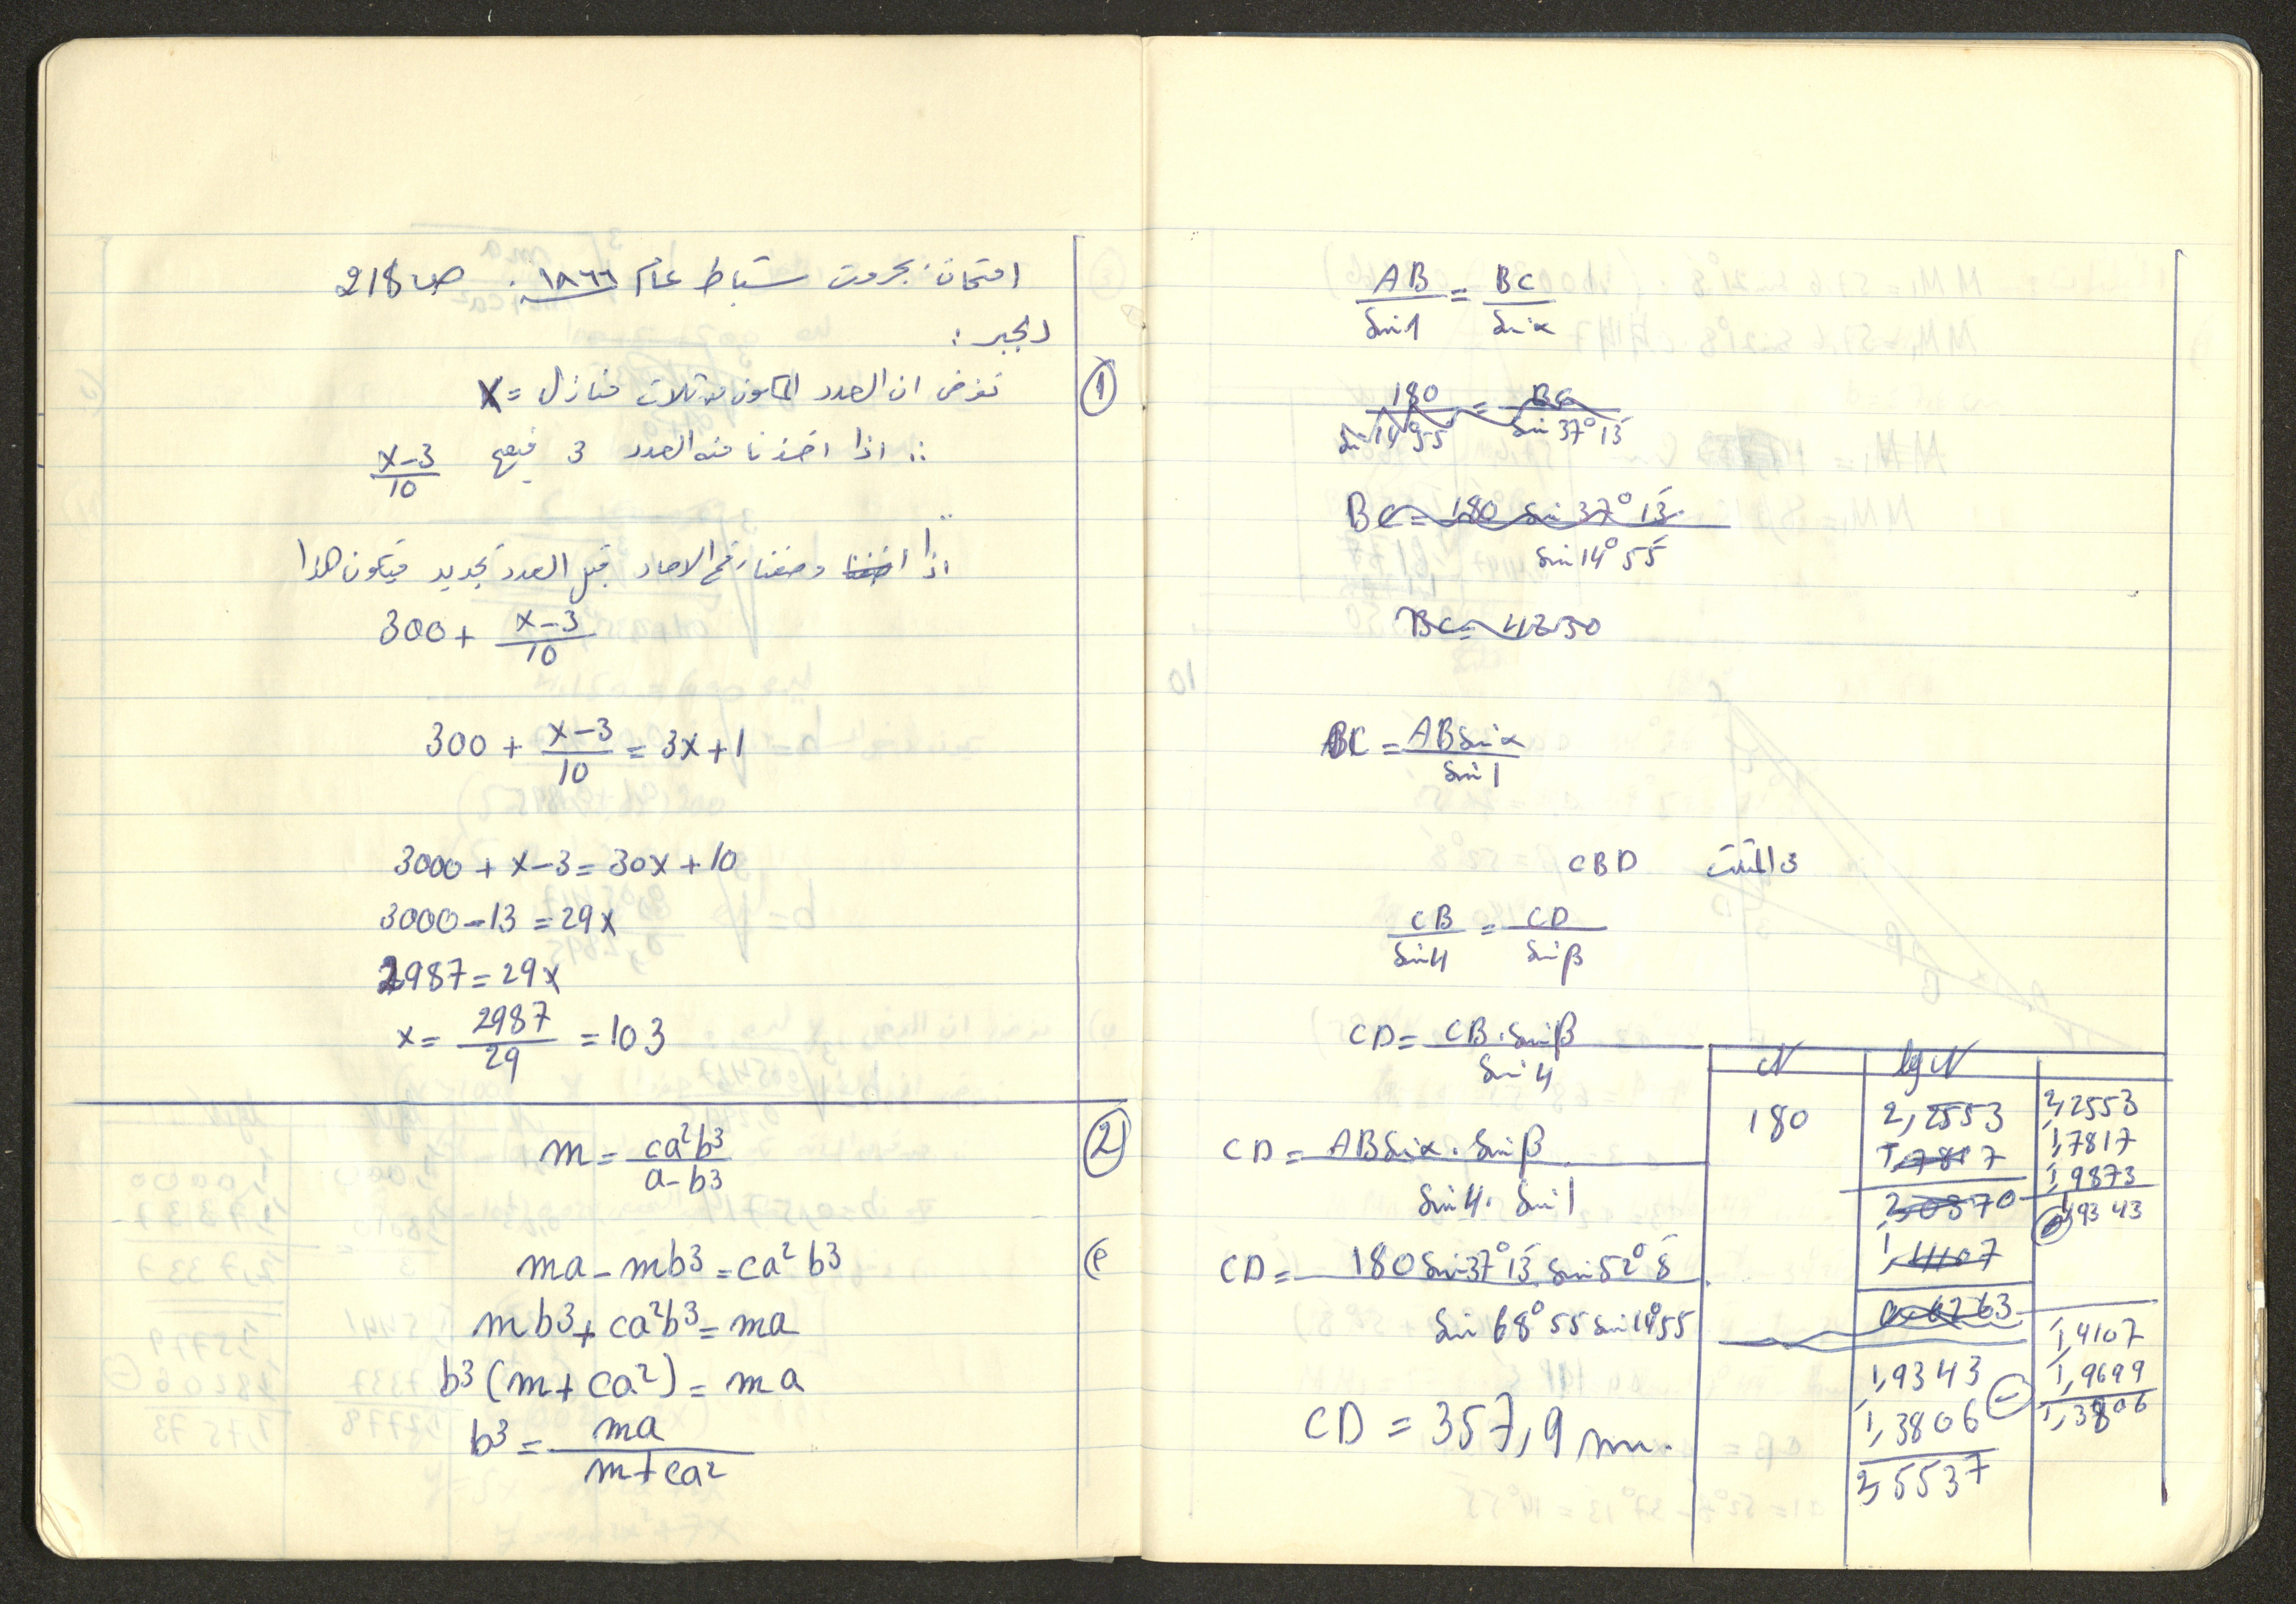 امتحان بجروت شباط عام ١٩٦٦. ص 218
الجبر:
① نفرض ان العدد المكون من ثلاث منازل = x
∴ اذا اخذنا منه العدد 3 فيصبح (x-3)/10
اذا وضعنا رقم الاحاد قبل العدد الجديد فيكون هذا
300 + (x-3)/10
300 + (x-3)/10 = 3x+1
3000 + x-3 = 30x+10
3000-13 = 29x
2987 = 29x
x = 2987/29 = 103
② m = ca²b³/(a-b³)
ma - mb³ = ca²b³
mb³ + ca²b³ = ma
b³(m+ca²) = ma
b³ = ma/(m+ca²)
AB/sin1 = BC/sinα
180/sin14°55' = BC/sin37°13'
BC = 180 sin37°13'/sin14°55'
BC = 4230
BC = ABsinα/sin1
CBD المثلث
CB/sin4 = CD/sinβ
CD = CB.sinβ/sin4
CD = ABsinα.sinβ/sin4.sin1
CD = 180sin37°13'.sin52°8'/sin68°55'sin14°55'
CD = 357,9 m.
N lgN
180 2,2553 2,2553
1,7817 1,7817
1,9873
2,0370 1,9343
1,4107
0,6263
1,4107
1,9343 1,9699
1,3806 1,3806
2,5537